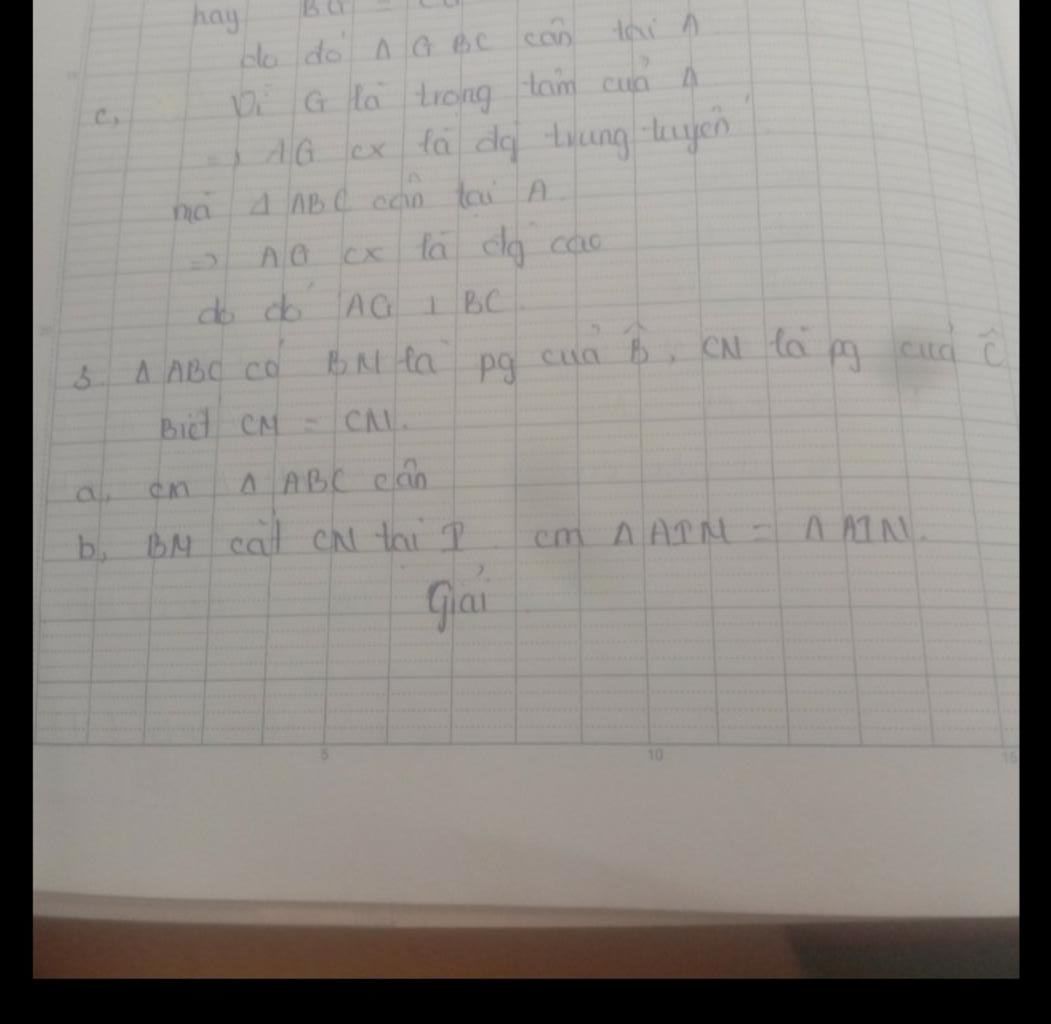 hay BG =
do đó Δ G BC cân tại A
c, Vì G là trọng tâm của Δ
=> AG cx là đg trung tuyến
mà Δ ABC cân tại A
=> AG cx là đg cao
do đó AG ⊥ BC
3. Δ ABC có BM là pg của B̂, CN là pg của Ĉ
Biết CM = CN.
a, cm Δ ABC cân
b, BM cắt CN tại I cm Δ AIM = Δ AIN.
Giải
5 10 15